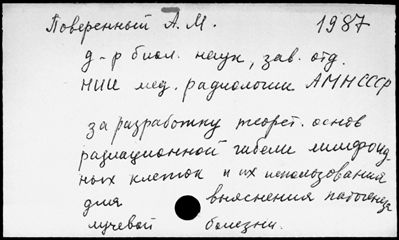 Поверенный А. М. 1987
д-р биол. наук, зав. отд.
НИИ мед. радиологии АМН СССР
за разработку теорет. основ
радиационной гибели лимфоид-
ных клеток и их использования
для выяснения патогенеза
лучевой болезни.